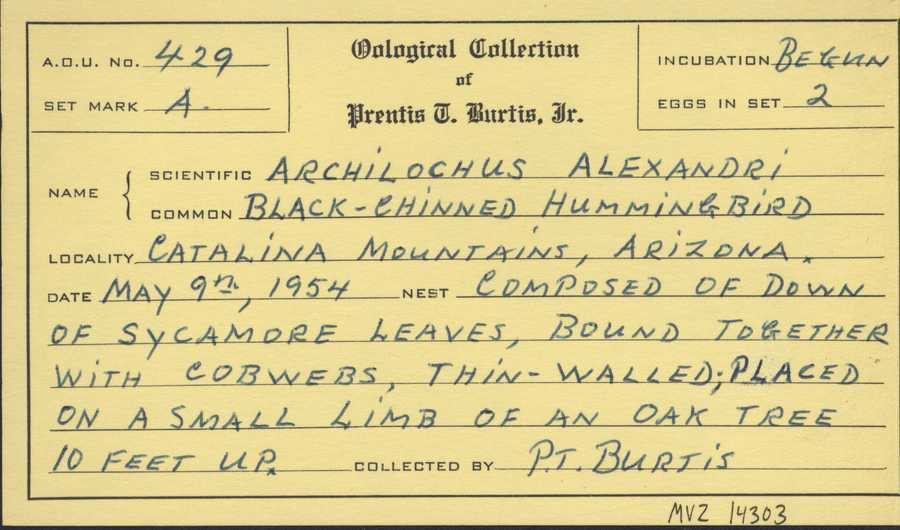 A.O.U. No. 429
SET MARK A.
Oological Collection
of
Prentis T. Burtis, Jr.
INCUBATION BEGUN
EGGS IN SET 2
NAME
SCIENTIFIC ARCHILOCHUS ALEXANDRI
COMMON BLACK-CHINNED HUMMINGBIRD
LOCALITY CATALINA MOUNTAINS, ARIZONA.
DATE MAY 9th, 1954 NEST COMPOSED OF DOWN
OF SYCAMORE LEAVES, BOUND TOGETHER
WITH COBWEBS, THIN-WALLED; PLACED
ON A SMALL LIMB OF AN OAK TREE
10 FEET UP. COLLECTED BY P.T. BURTIS
MVZ 14303